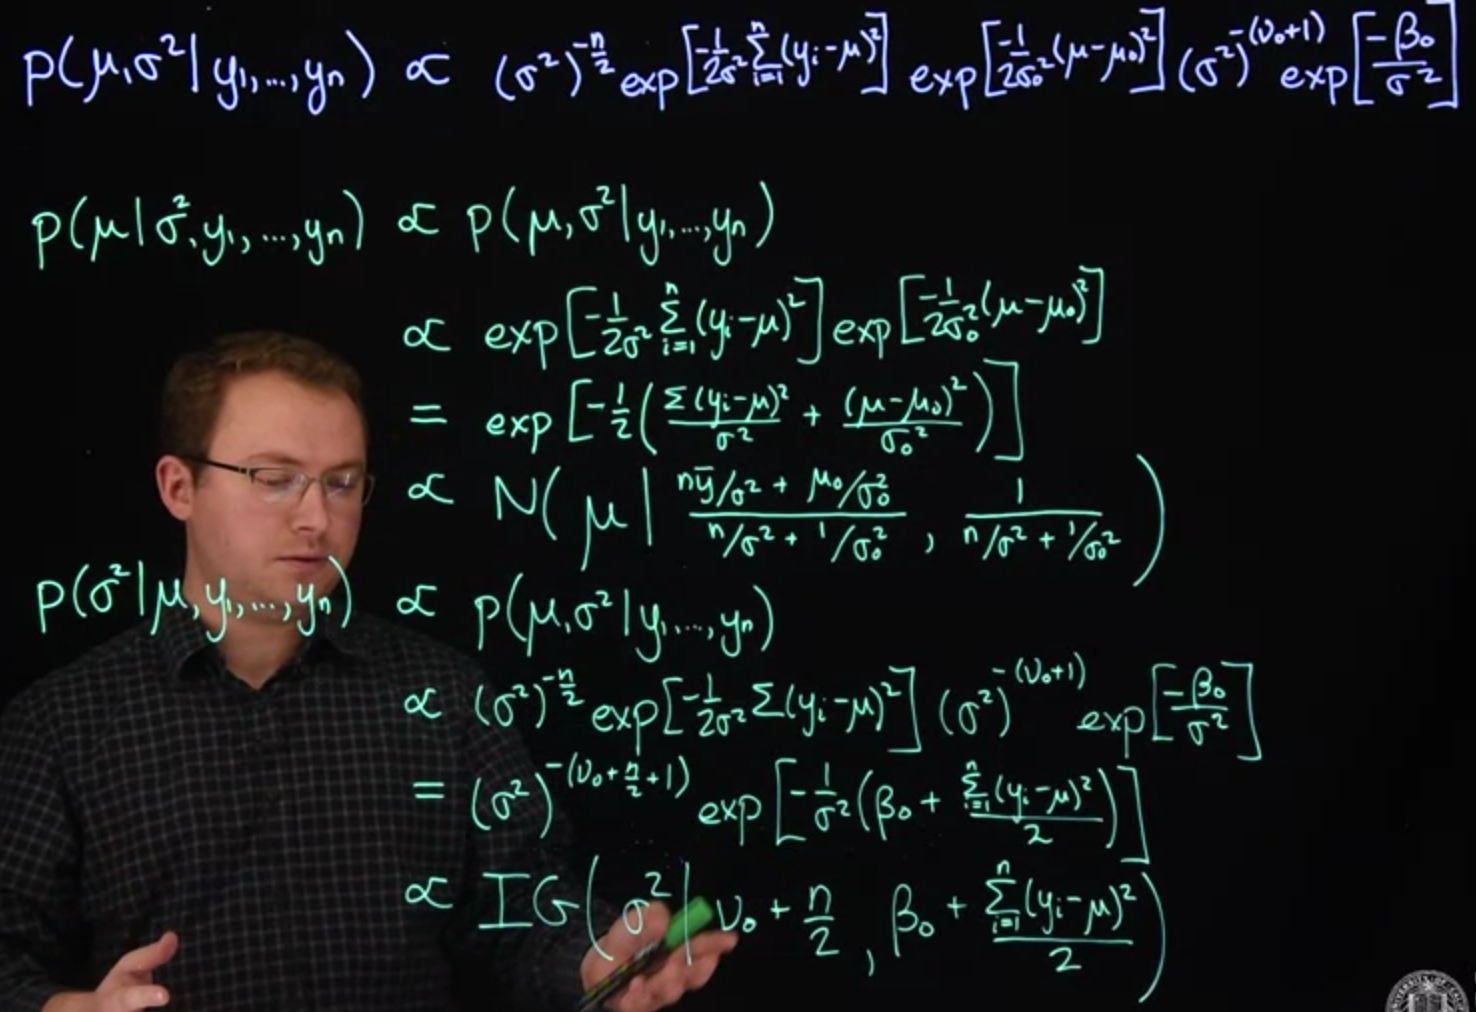 p(μ,σ²|y₁,...,yₙ) ∝ (σ²)^(-n/2) exp[-1/2σ² Σᵢ₌₁ⁿ(yᵢ-μ)²] exp[-1/2σ₀²(μ-μ₀)²] (σ²)^-(ν₀+1) exp[-β₀/σ²]
p(μ|σ²,y₁,...,yₙ) ∝ p(μ,σ²|y₁,...,yₙ)
∝ exp[-1/2σ² Σᵢ₌₁ⁿ(yᵢ-μ)²] exp[-1/2σ₀²(μ-μ₀)²]
= exp[-1/2(Σ(yᵢ-μ)²/σ² + (μ-μ₀)²/σ₀²)]
∝ N(μ| (nȳ/σ² + μ₀/σ₀²)/(n/σ² + 1/σ₀²), 1/(n/σ² + 1/σ₀²))
p(σ²|μ,y₁,...,yₙ) ∝ p(μ,σ²|y₁,...,yₙ)
∝ (σ²)^(-n/2) exp[-1/2σ² Σ(yᵢ-μ)²] (σ²)^-(ν₀+1) exp[-β₀/σ²]
= (σ²)^-(ν₀+n/2+1) exp[-1/σ²(β₀ + Σᵢ₌₁ⁿ(yᵢ-μ)²/2)]
∝ IG(σ²|ν₀ + n/2, β₀ + Σᵢ₌₁ⁿ(yᵢ-μ)²/2)